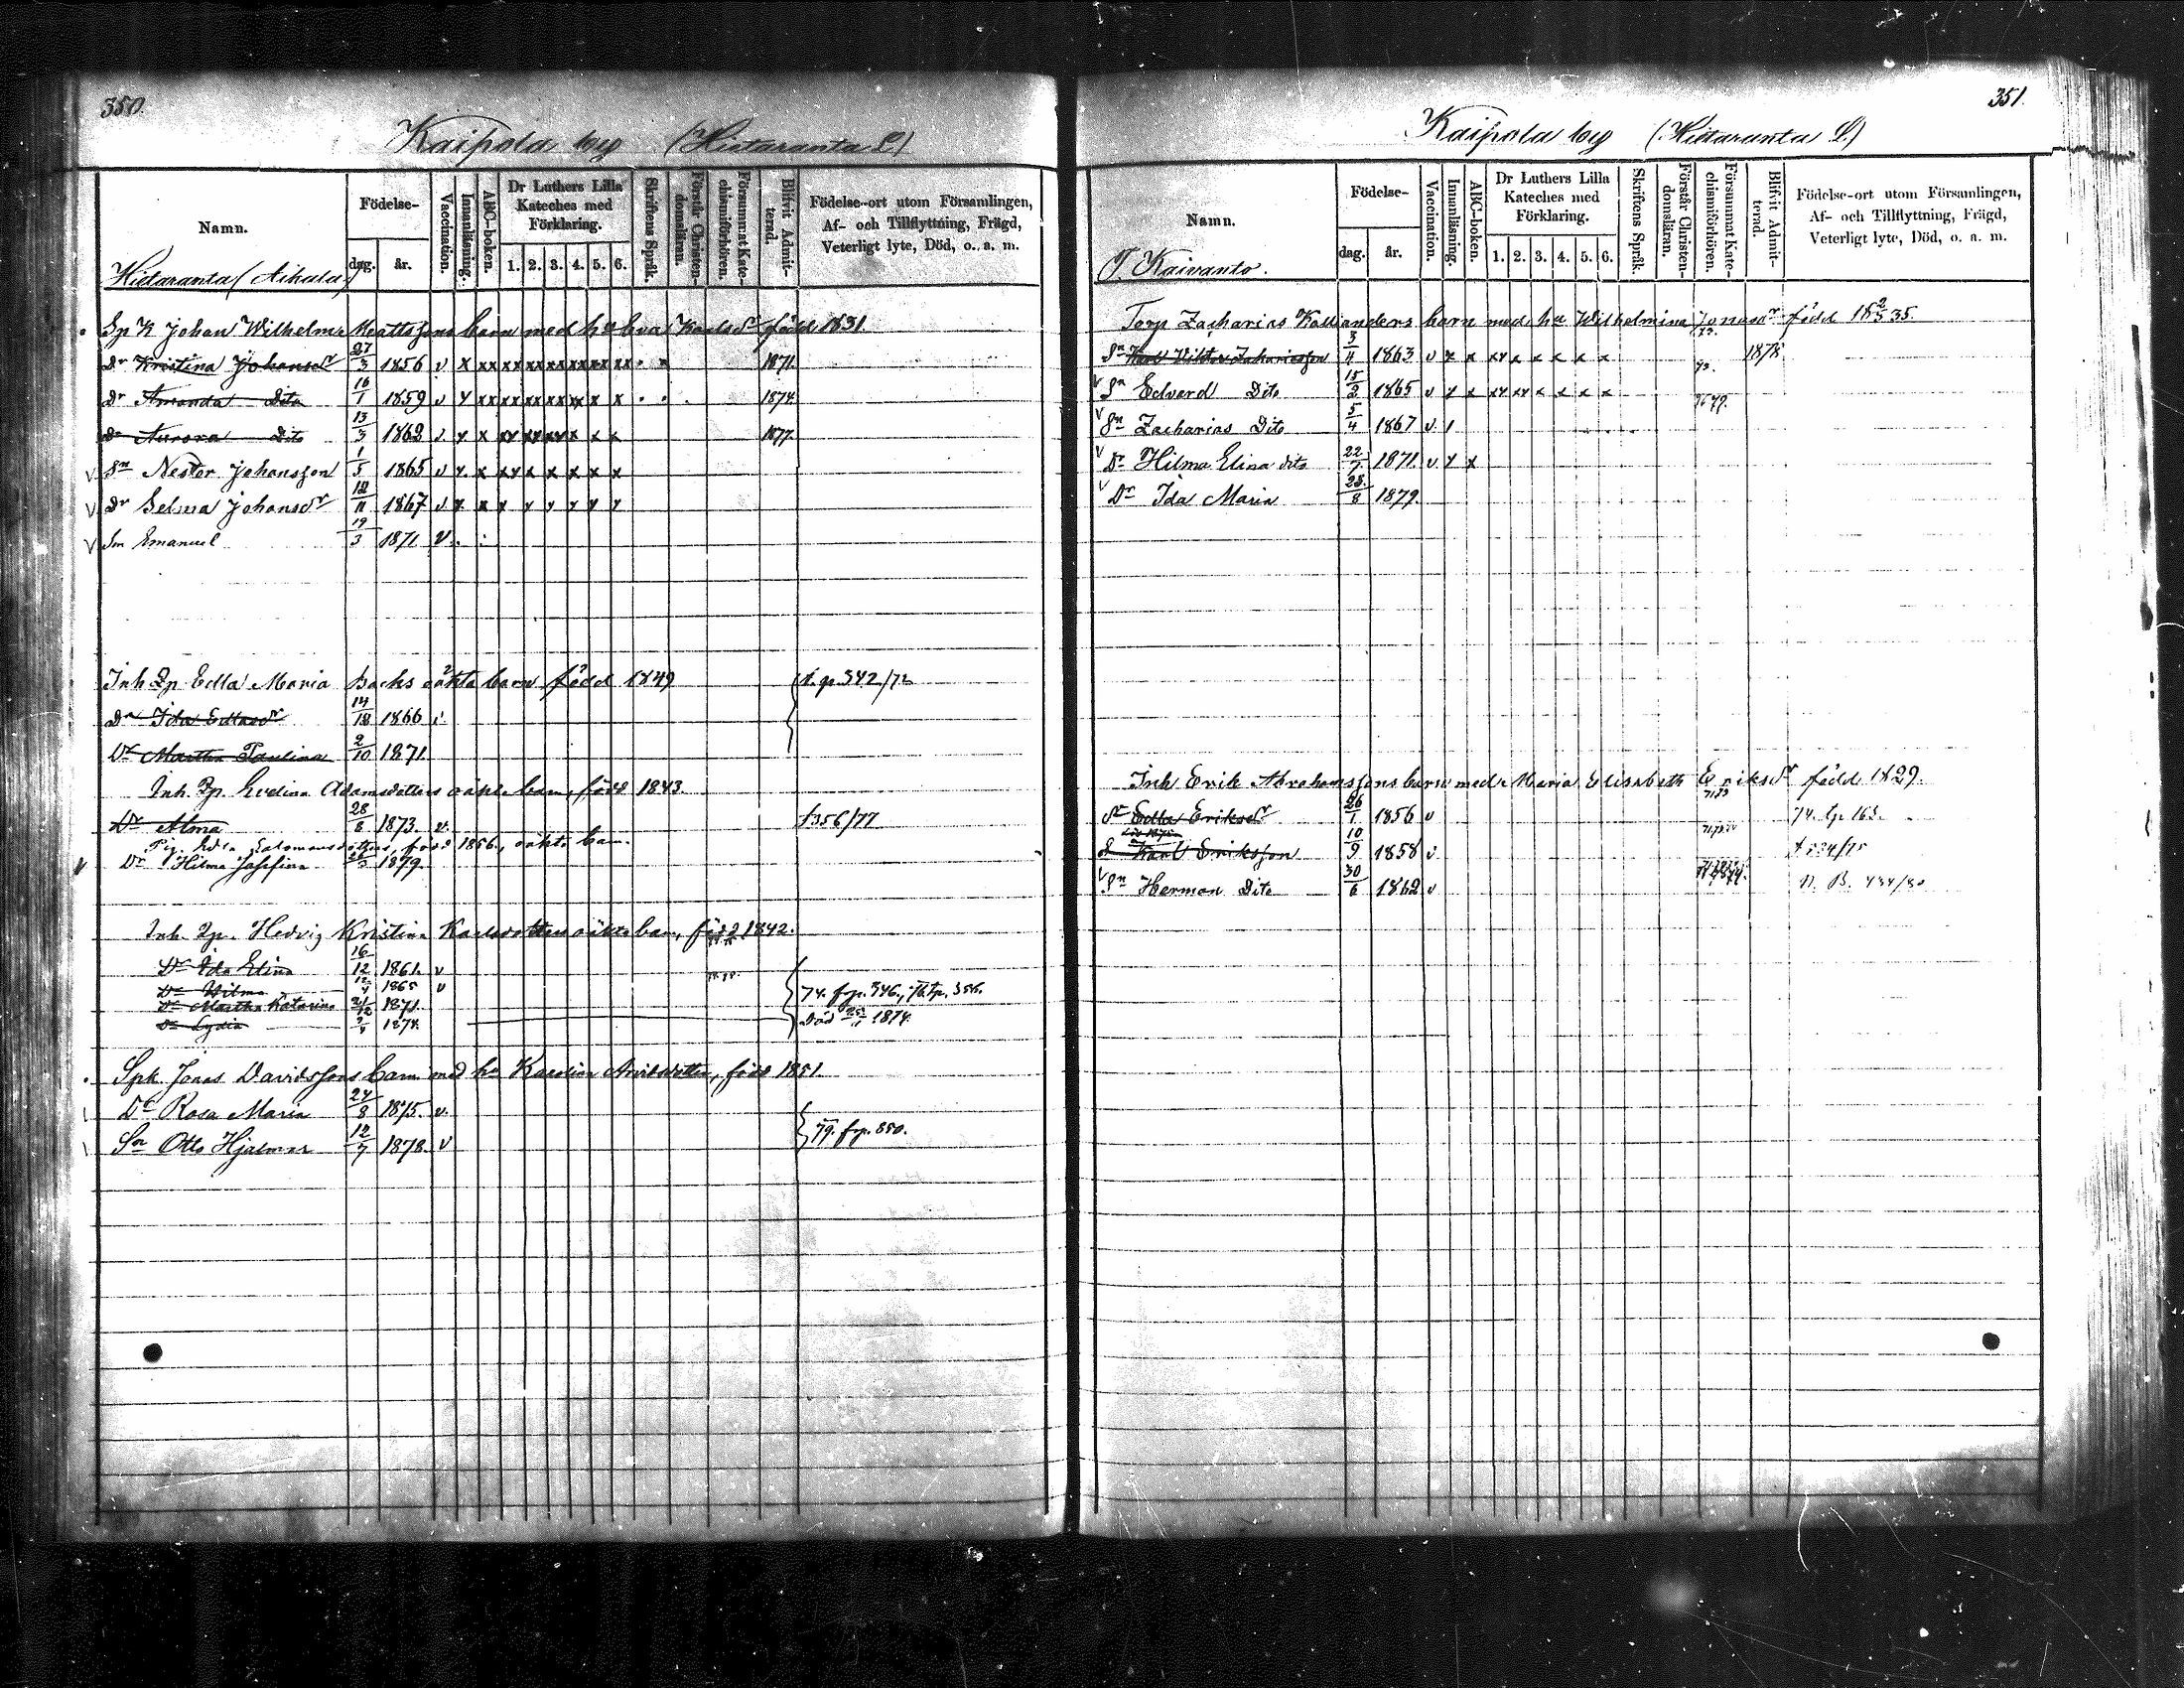 350.
Kaipola by (Hietaranta L)
Namn.
Födelse-
dag. år.
Vaccination.
Innanläsning.
ABC-boken.
Dr Luthers Lilla Kateches med Förklaring.
1. 2. 3. 4. 5. 6.
Skriftens Språk.
Förstår Christendomsläran.
Försummat Katechismiförhören.
Blifvit Admitterad.
Födelse-ort utom Församlingen, Af- och Tillflyttning, Frägd, Veterligt lyte, Död, o. a. m.
Hietaranta (Aihala)
Sp K Johan Wilhelm Mattssons barn med hu Eva Karlsdr född 1831.
Dr Kristina Johansdr 27/3 1856 v x xx xx xx xx xx xx xx 1871.
Dr Amanda Dito 16/1 1859 v x xx xx xx xx xx x x 1874.
Dr Aurora Dito 13/3 1862 v x x xx xx xx x x x 1877.
v Sn Nestor Johansson 1/5 1865 v x x xx x x x x x
v Dr Selma Johansdr 12/11 1867 v x x x x x x x x
v Sn Emanuel 19/3 1871 v
Inh Qp Edla Maria Backs oäkta barn född 1849 t. p. 342/72
Dr Ida Edlasdr 14/12 1866
Dr Martha Paulina 2/10 1871.
Inh. Qp. Evelina Adamsdotters oäkta barn, född 1843
Dr Alma 28/8 1873. v. t 356/77
Pig. Edla Salomonsdotters, född 1856, oäkta barn.
v Dr Hilma Josefina 1879.
Inh. Qp. Hedvig Kristina Karlsdotters oäkta barn, född 1842.
Dr Ida Elina 16/12 1861. v
Dr Hilma 1865 v
Dr Martha Katarina 21/12 1871. 74. frp. 346., 76 tp. 356.
Dr Lydia 1874. Död 1874.
Spk. Jonas Davidssons barn med hu Karolina Arvidsdotter, född 1851.
Dr Rosa Maria 24/8 1875. v.
Sn Otto Hjalmar 12/7 1878. v 79. frp. 350.
351.
Kaipola by (Hietaranta L)
Namn.
Födelse-
dag. år.
Vaccination.
Innanläsning.
ABC-boken.
Dr Luthers Lilla Kateches med Förklaring.
1. 2. 3. 4. 5. 6.
Skriftens Språk.
Förstår Christendomsläran.
Försummat Katechismiförhören.
Blifvit Admitterad.
Födelse-ort utom Församlingen, Af- och Tillflyttning, Frägd, Veterligt lyte, Död, o. a. m.
T. Kaivanto.
Torp Zacharias Kallanders barn med hu Wilhelmina Jonasdr född 18 2/3 35.
Sn Karl Viktor Zachariasson 3/4 1863 v x x xx x x x x x 1878
v Sn Edvard Dito 15/2 1865 v x x xx xx x x x x
v Sn Zacharias Dito 5/4 1867 v 1
v Dr Hilma Elina dito 22/7 1871. v x x
v Dr Ida Maria 28/8 1879.
Inh Erik Abrahamssons barn med Maria Elisabeth Eriksdr född 1829.
Dr Edla Eriksdr 26/1 1856 v 74. tp 163.
Karl Eriksson 10/9 1858 v t 334/75
v Sn Herman Dito 30/6 1862 v N. B. 434/80